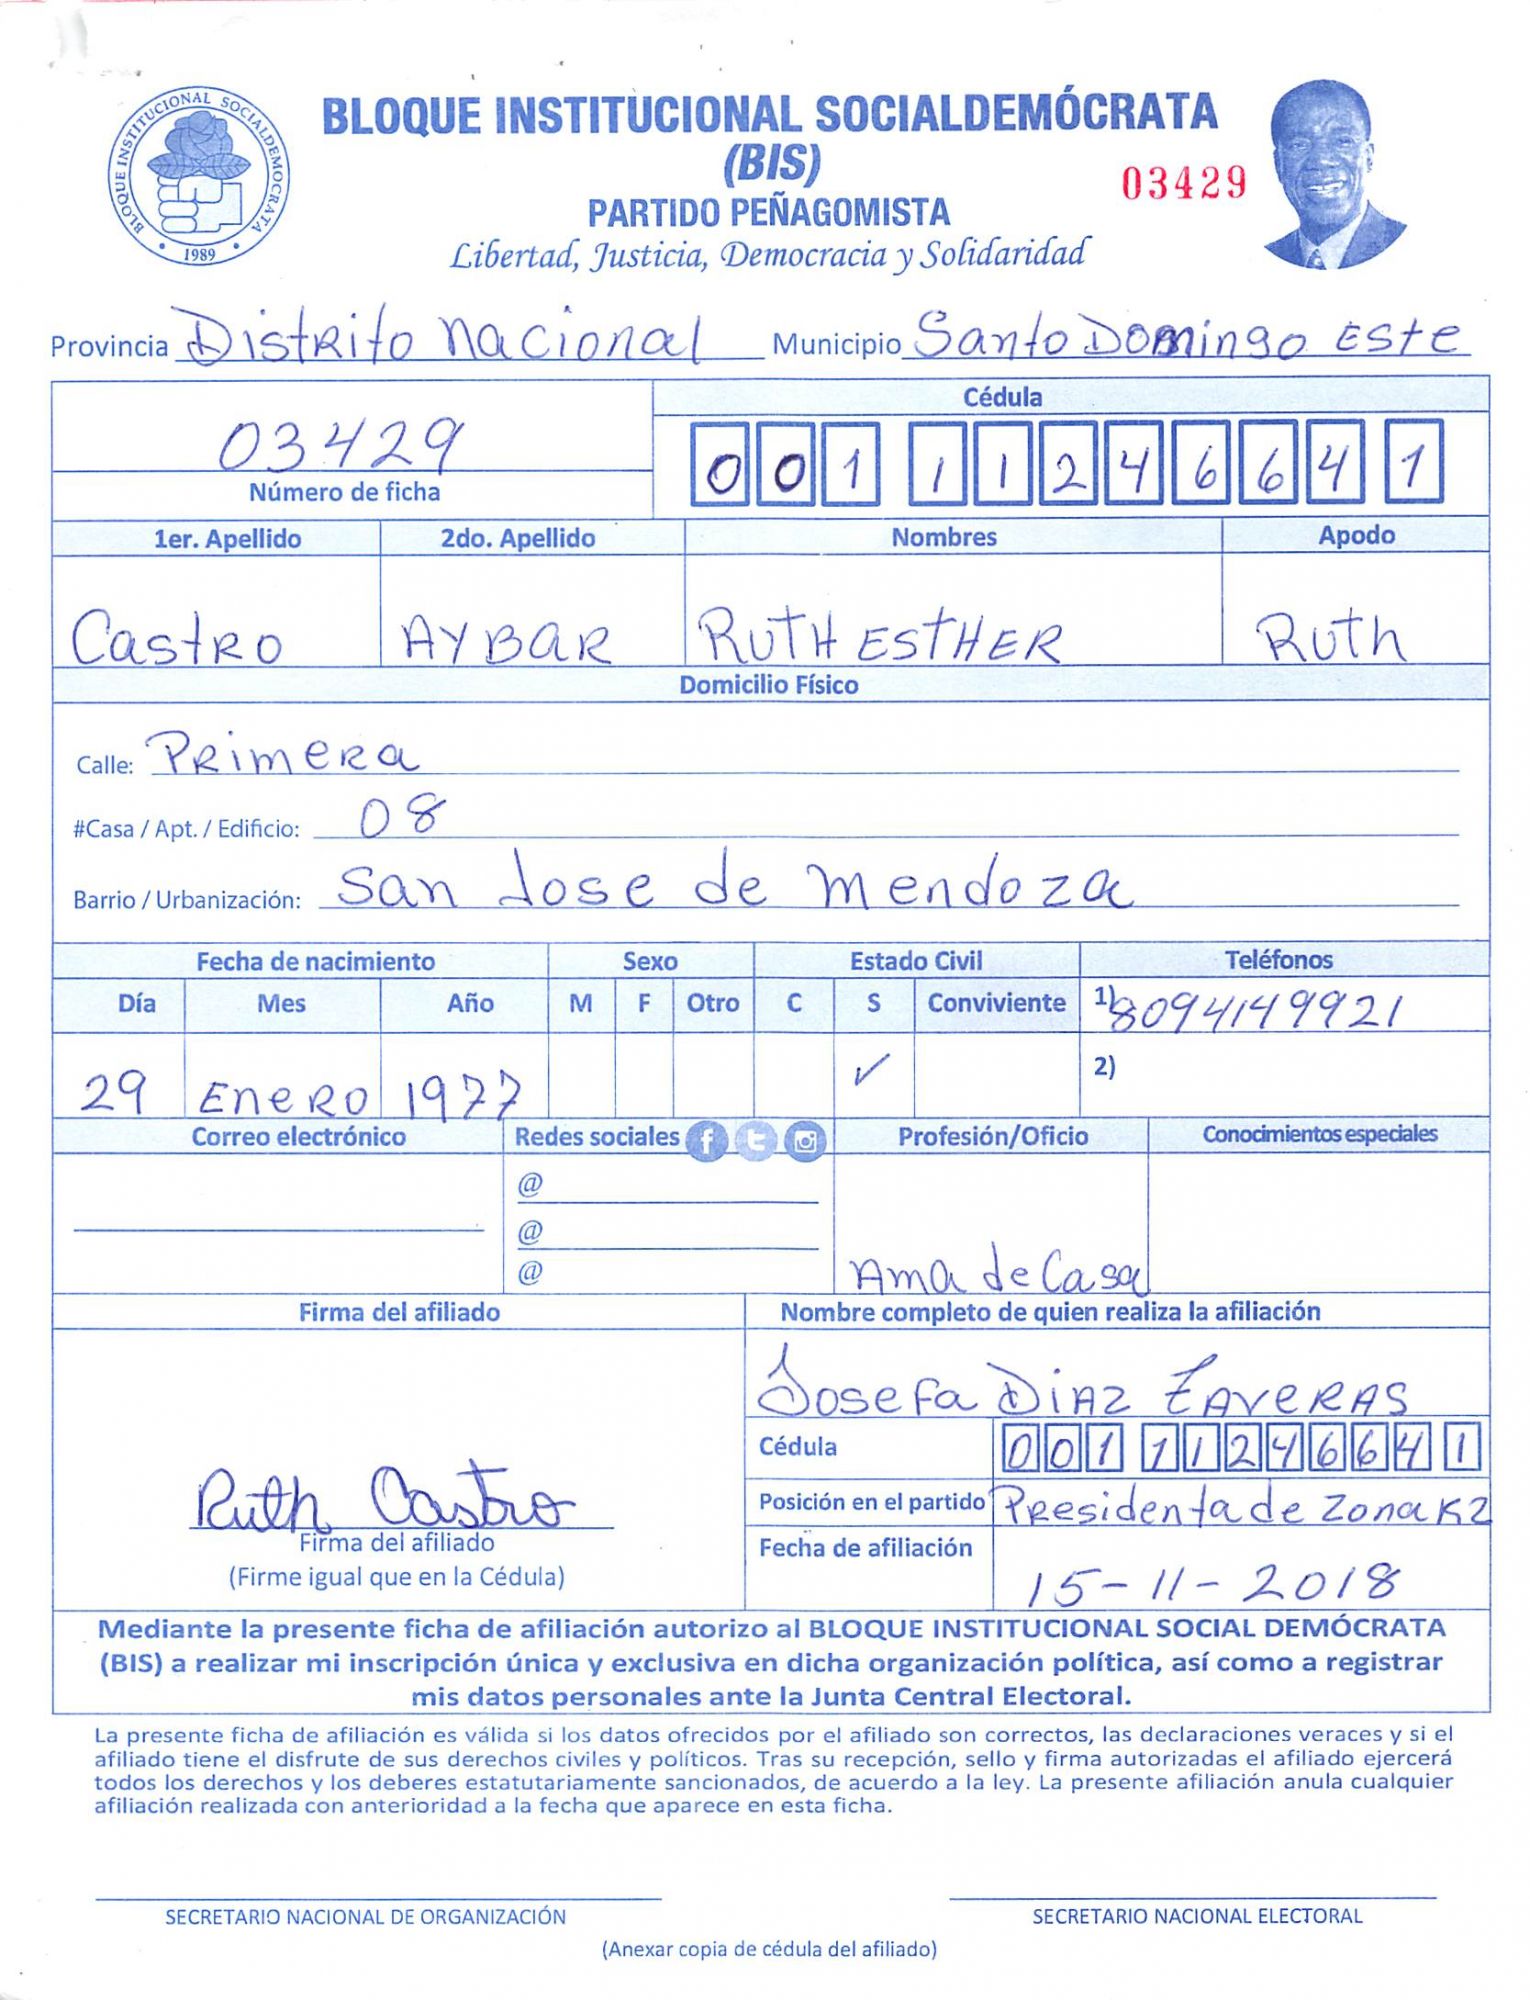 BLOQUE INSTITUCIONAL SOCIALDEMOCRATA
1989
BLOQUE INSTITUCIONAL SOCIALDEMÓCRATA
(BIS)
03429
PARTIDO PEÑAGOMISTA
Libertad, Justicia, Democracia y Solidaridad
Provincia Distrito Nacional Municipio Santo Domingo Este
Cédula
03429 001 1124664 1
Número de ficha
1er. Apellido 2do. Apellido Nombres Apodo
Castro AYBAR RUTH ESTHER Ruth
Domicilio Físico
Calle: Primera
#Casa / Apt. / Edificio: 08
Barrio / Urbanización: San Jose de Mendoza
Fecha de nacimiento Sexo Estado Civil Teléfonos
Día Mes Año M F Otro C S Conviviente 1) 8094149921
29 Enero 1977 ✓ 2)
Correo electrónico Redes sociales Profesión/Oficio Conocimientos especiales
@
@
@ Ama de Casa
Firma del afiliado Nombre completo de quien realiza la afiliación
Josefa Diaz Taveras
Cédula 001 1124664 1
Ruth Castro Posición en el partido Presidenta de Zona K2
Firma del afiliado Fecha de afiliación
(Firme igual que en la Cédula) 15-11-2018
Mediante la presente ficha de afiliación autorizo al BLOQUE INSTITUCIONAL SOCIAL DEMÓCRATA
(BIS) a realizar mi inscripción única y exclusiva en dicha organización política, así como a registrar
mis datos personales ante la Junta Central Electoral.
La presente ficha de afiliación es válida si los datos ofrecidos por el afiliado son correctos, las declaraciones veraces y si el
afiliado tiene el disfrute de sus derechos civiles y políticos. Tras su recepción, sello y firma autorizadas el afiliado ejercerá
todos los derechos y los deberes estatutariamente sancionados, de acuerdo a la ley. La presente afiliación anula cualquier
afiliación realizada con anterioridad a la fecha que aparece en esta ficha.
SECRETARIO NACIONAL DE ORGANIZACIÓN SECRETARIO NACIONAL ELECTORAL
(Anexar copia de cédula del afiliado)